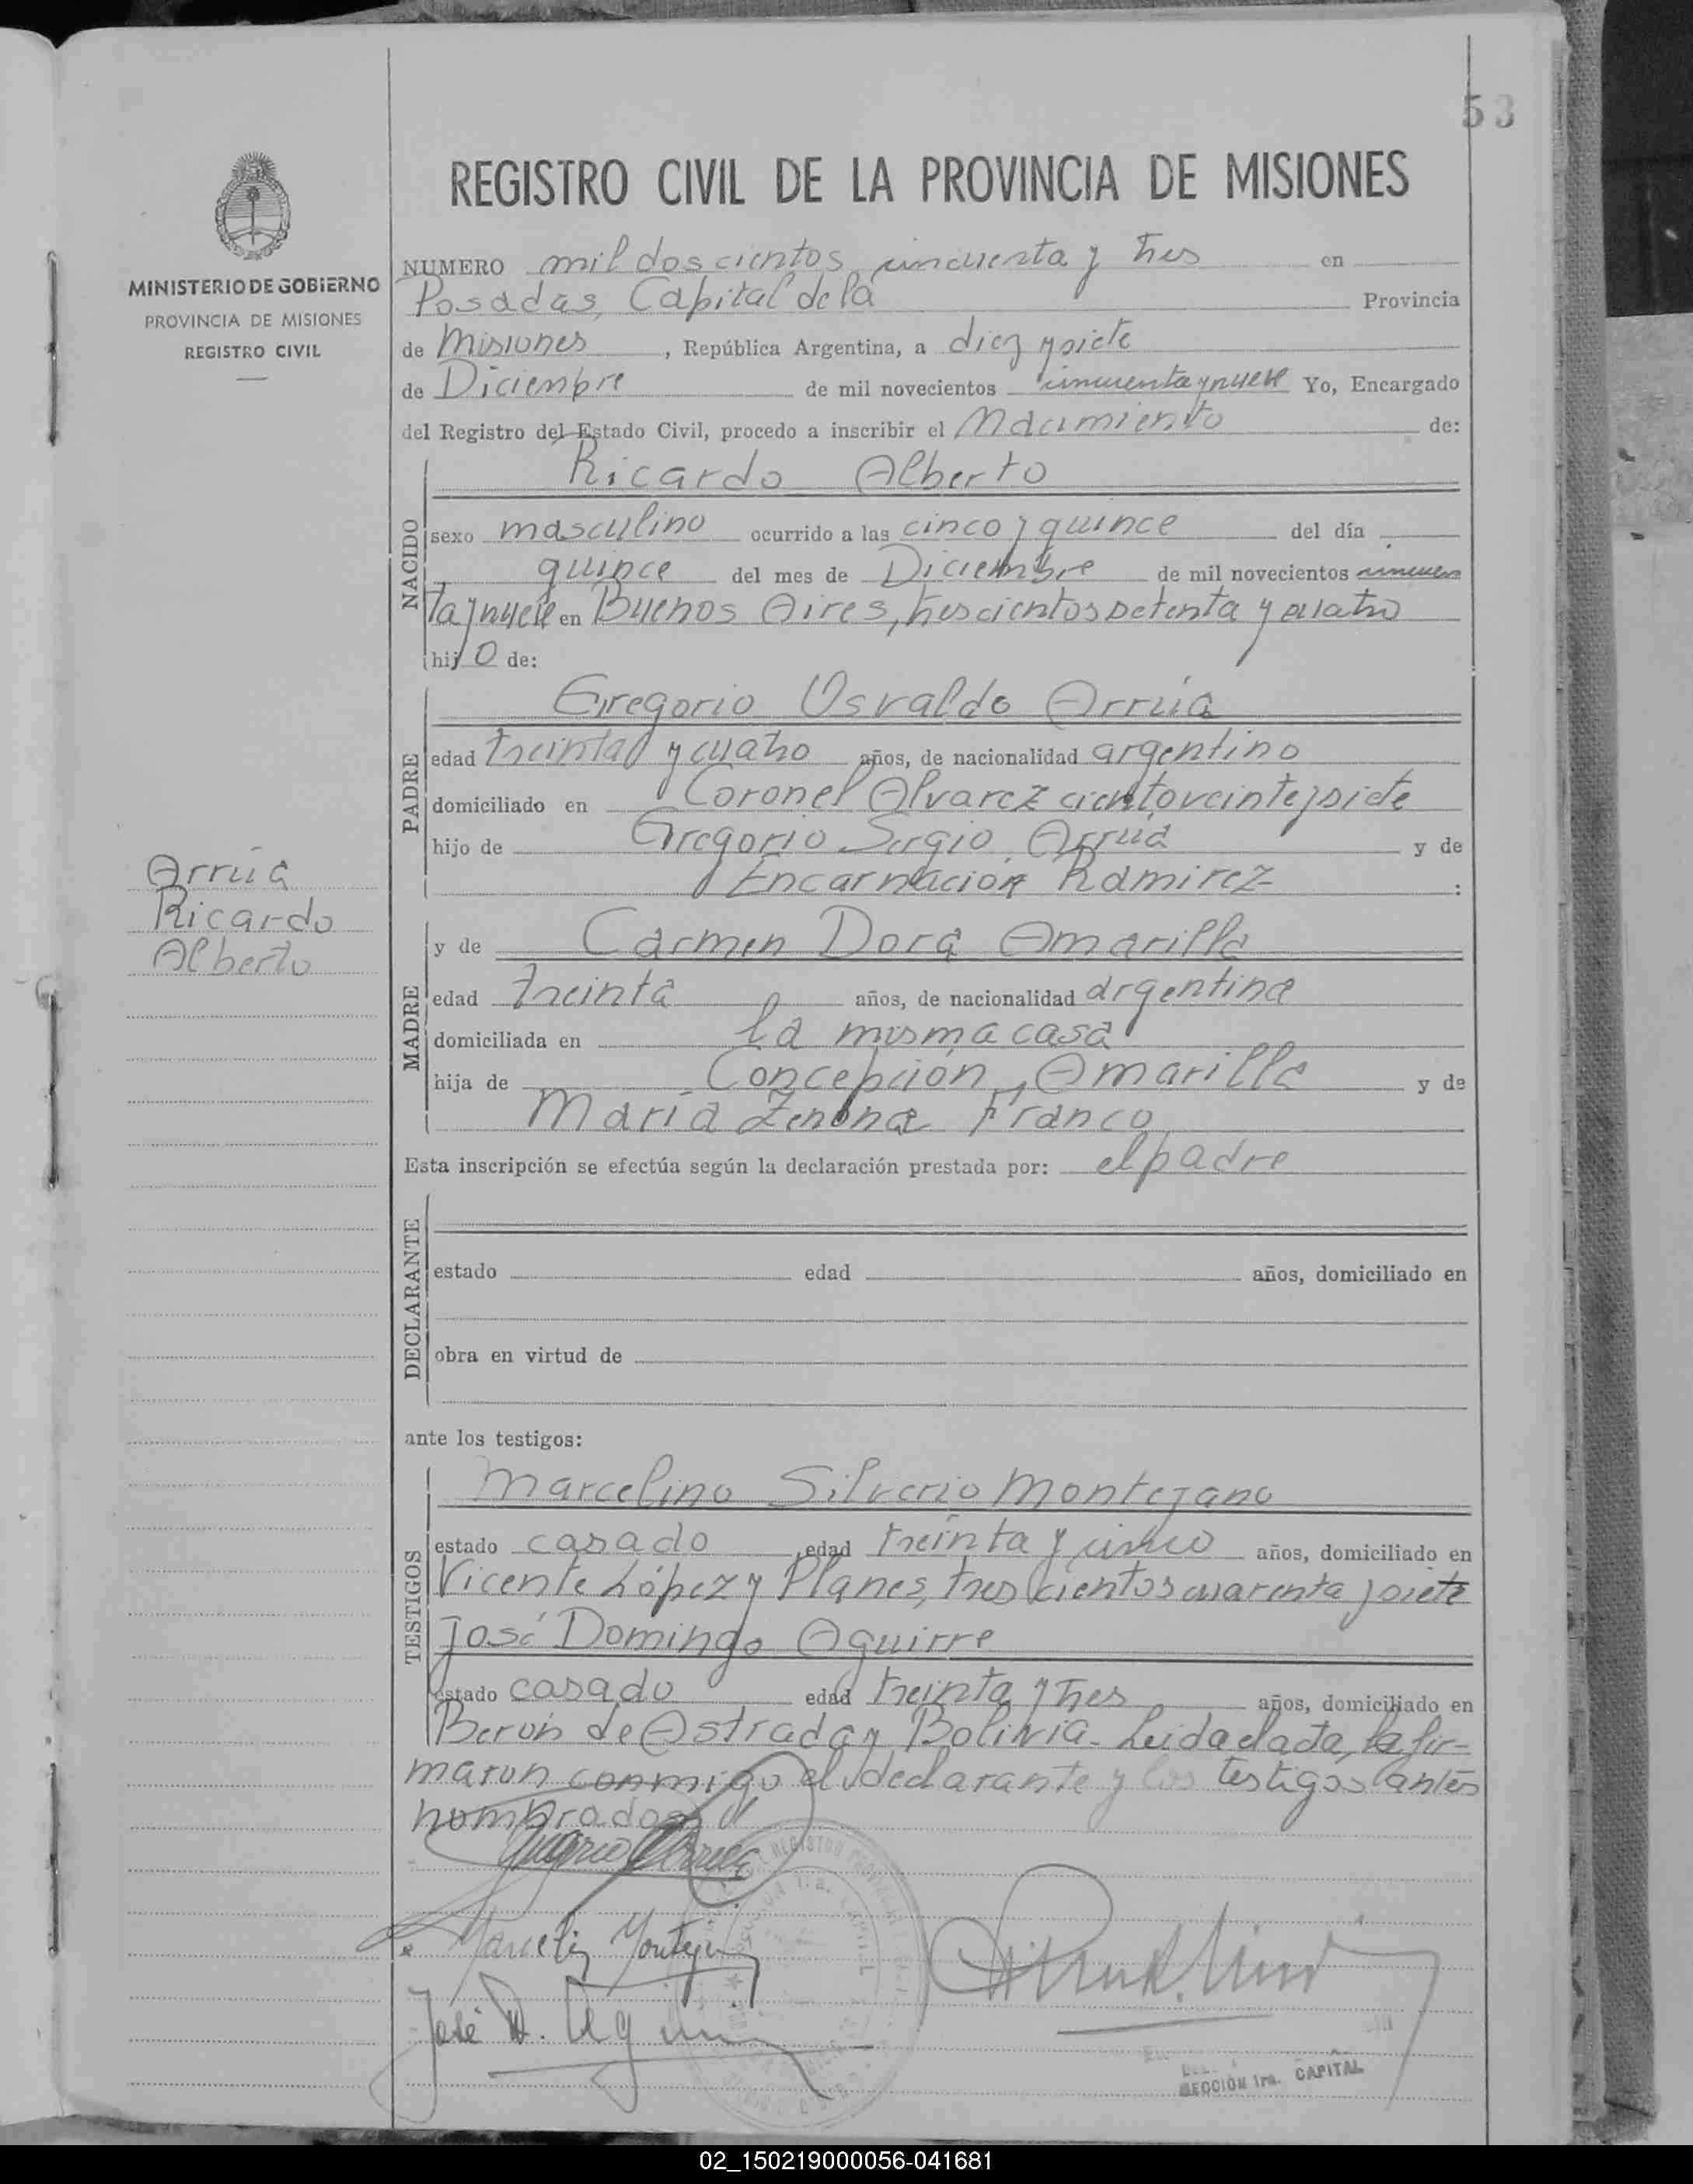 53
REGISTRO CIVIL DE LA PROVINCIA DE MISIONES
MINISTERIO DE GOBIERNO
PROVINCIA DE MISIONES
REGISTRO CIVIL
NUMERO mil doscientos cincuenta y tres en
Posadas, Capital de la Provincia
de Misiones, República Argentina, a diez y siete
de Diciembre de mil novecientos cincuenta y nueve Yo, Encargado
del Registro del Estado Civil, procedo a inscribir el Nacimiento de:
Ricardo Alberto
NACIDO
sexo masculino ocurrido a las cinco y quince del día
quince del mes de Diciembre de mil novecientos cincuen
ta y nueve en Buenos Aires, trescientos setenta y cuatro
hijo de:
Gregorio Osvaldo Arrúa
PADRE
edad treinta y cuatro años, de nacionalidad argentino
domiciliado en Coronel Alvarez ciento veinte y siete
hijo de Gregorio Sergio Arrúa y de
Encarnación Ramirez :
Arrúa
Ricardo
Alberto
y de Carmen Dora Amarilla
MADRE
edad treinta años, de nacionalidad argentina
domiciliada en la misma casa
hija de Concepción Amarilla y de
María Zenona Franco
Esta inscripción se efectúa según la declaración prestada por: el padre
DECLARANTE
estado edad años, domiciliado en
obra en virtud de
ante los testigos:
TESTIGOS
Marcelino Silverio Montejano
estado casado edad treinta y cinco años, domiciliado en
Vicente López y Planes, trescientos cuarenta y siete
José Domingo Aguirre
estado casado edad treinta y tres años, domiciliado en
Berón de Astrada y Bolivia. Leida el acta, la fir-
maron conmigo el declarante y los testigos antes
nombrados
José D. Ag
SECCIÓN 1ra. CAPITAL
02_150219000056-041681